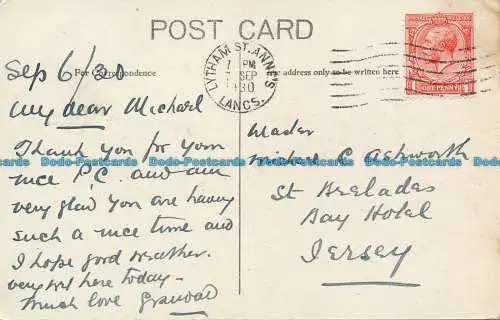 POST CARD
Sep 6/30
For Correspondence
The address only to be written here
LYTHAM ST. ANNE'S
PM
SEP
1930
LANCS.
ONE PENNY
My dear Michael
Thank you for your
nice P.C. and am
very glad you are having
such a nice time and
I hope good weather.
very wet here today -
Much love Grandad
Master
Michael C Ashworth
St Brelades
Bay Hotel
Jersey
Dodo-Postcards Dodo-Postcards Dodo-Postcards Dodo-Postcards